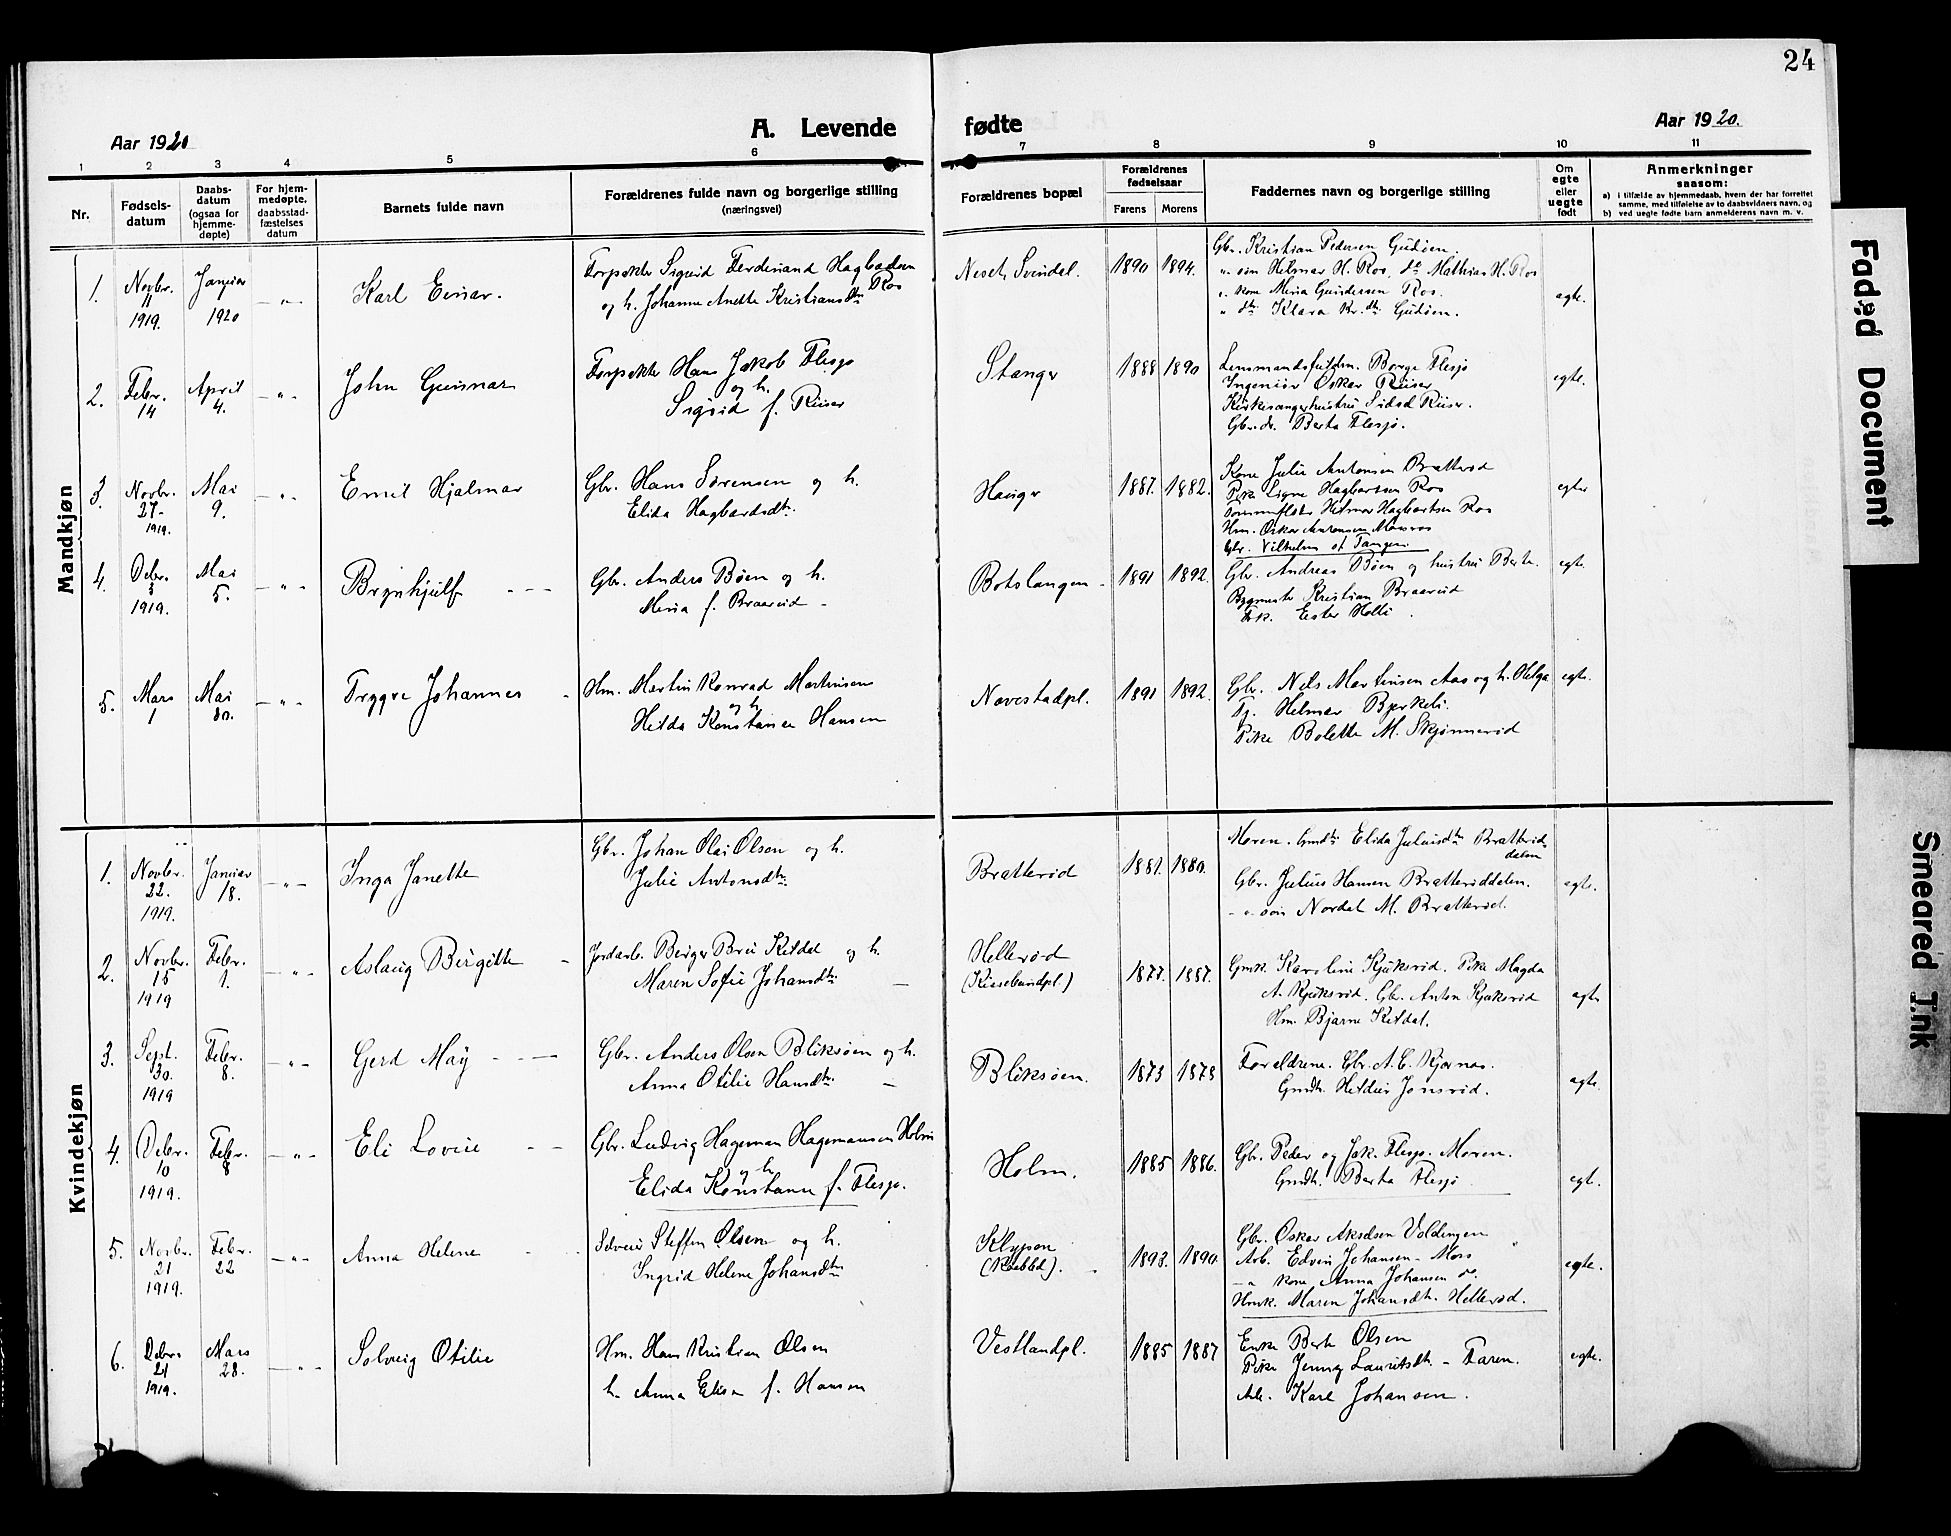 24
Aar 1920
A. Levende fødte
Aar 1920.
1 2 3 4 5 6 7 8 9 10 11
Nr.
Fødsels-
datum
Daabs-
datum
(ogsaa for
hjemme-
døpte)
For hjem-
medøpte.
daabsstad-
fæstelses
datum
Barnets fulde navn
Forældrenes fulde navn og borgerlige stilling
(næringsvei)
Forældrenes bopæl
Forældrenes
fødselsaar
Farens Morens
Faddernes navn og borgerlige stilling
Om
egte
eller
uegte
født
Anmerkninger
saasom:
a) i tilfælde av hjemmedaab, hvem der har forrettet
samme, med tilføielse av to daabsvidners navn, og
b) ved uegte fødte barn anmelderens navn m. v.
Mandkjøn
1. Novbr. 11 1919. Januar 1920 Karl Einar.
Sigurd Ferdinand Hagbadsen Ros
og h. Johanne Anette Kristiansdtr
Neset, Svindal. 1890 1894.
Gbr. Kristian Pedersen Gudøen.
" søn Helmer H. Ros, do Mathias H. Ros
" kone Mina Gundersen Ros.
" dtr Klara Kr.dtr Gudøen.
egte.
2. Febr. 14 April 4. John Gunnar
Hans Jakob Flesjø
og h.
Sigrid f. Riiser
Stanger 1888 1890
Lensmandsfuldm. Borge Flesjø
Ingeniør Oskar Riiser
Kirkesangerhustru Sidsel Riiser.
Gbr. dr. Berta Flesjø.
egte.
3. Novbr. 27- 1919. Mai 9. Emil Hjalmar
Gbr. Hans Sørensen og h.
Elida Hagbardsdtr.
Hauger 1887. 1882.
Kone Julie Antonsen Bratterød
Pike Signe Hagbartsen Ros
Helmer Hagbartsen Ros
Hm. Oskar Antonsen
Gbr. Vilhelm af Tangen
egte
4. Debr. 3 1919. Mai 5. Brynhjulf
Gbr. Anders Bøen og h.
Mina f. Braarud -
Botslangen - 1891 1892.
Gbr. Andreas Bøen og hustru Berte.
Bygmester Kristian Braarud
Frk. Ester Holli.
egte.
5. Mars 1 Mai 30. Trygve Johannes
Hm. Martin Konrad Martinsen
og h
Hilda Konstance Hansen
Navestadpl. 1891 1892.
Gbr. Nils Martinsen Aas og h. Helga
Tj. Helmer Bjerkeli.
Pike Bolette M. Skjønnerød
egte.
Kvindekjøn
1. Novbr. 22. 1919. Januar 18. Inga Janette
Gbr. Johan Olai Olsen og h.
Julie Antonsdtr.
Bratterød 1881. 1880.
Moren. Gmdtr Elida Juliusdtr Bratterød
dalen
Gbr. Julius Hansen Bratterøddalen.
- " - søn Nordal M. Bratterød.
egte.
2. Novbr. 15 1919 Febr. 1. Aslaug Birgitte
Jordarb. Birger Kildal og h.
Maren Sofie Johansdtr.
Hellerød
1877. 1887.
Gmk. Karoline Kjuksrød. Pike Magda
A. Kjuksrød. Gbr. Anton Kjuksrød
Hm. Bjarne Kildal.
egte
3. Sept. 30. 1919 Febr. 8. Gerd May
Gbr. Anders Olsen Bliksøen og h.
Anna Otilie Hansdtr.
Bliksøen. 1873 1878
Forældrene. Gbr. A. C. Kjernes.
Gmdtr. Hildur Jonsrød.
egte.
4. Debr. 10 1919. Febr. 8 Eli Lovise
Gbr. Ludvig Hageman Hagemansen Holm
og h.
Elida Konstanse f. Flesjø.
Holm. 1885 1886.
Gbr. Peder og Jak. Flesjø. Moren.
Gmdtr. Berta Flesjø
egte.
5. Novbr. 21 1919. Febr. 22 Anna Helene
Steffen Olsen og h.
Ingrid Helene Johansdtr
Klypen
1893. 1890
Gbr. Oskar Akselsen Voldengen
Arb. Edvin Johansen - Moss
- " kone Anna Johansen do.
Hmk. Maren Johansdtr. Hellerød.
egte.
6. Debr. 21 1919. Mars 28. Solveig Otilie
Hm. Hans Kristian Olsen
h. Anna Elise f. Hansen
Vestlandpl. 1885 1887
Enke Berte Olsen
Pike Jenny Lauritsdtr. - Faren.
Arb. Karl Johansen.
egte.
Faded Document
Smeared Ink